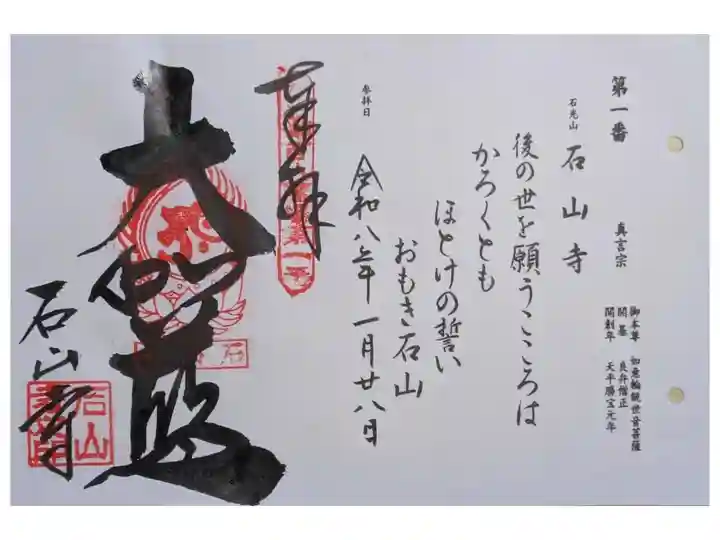 第一番
真言宗
御本尊 如意輪観世音菩薩
開基 良弁僧正
開創年 天平勝宝元年
石光山 石山寺
後の世を願うこころは
かろくとも
ほとけの誓い
おもき石山
参拝日
令和八年一月廿八日
奉拝
大伽藍
石山寺